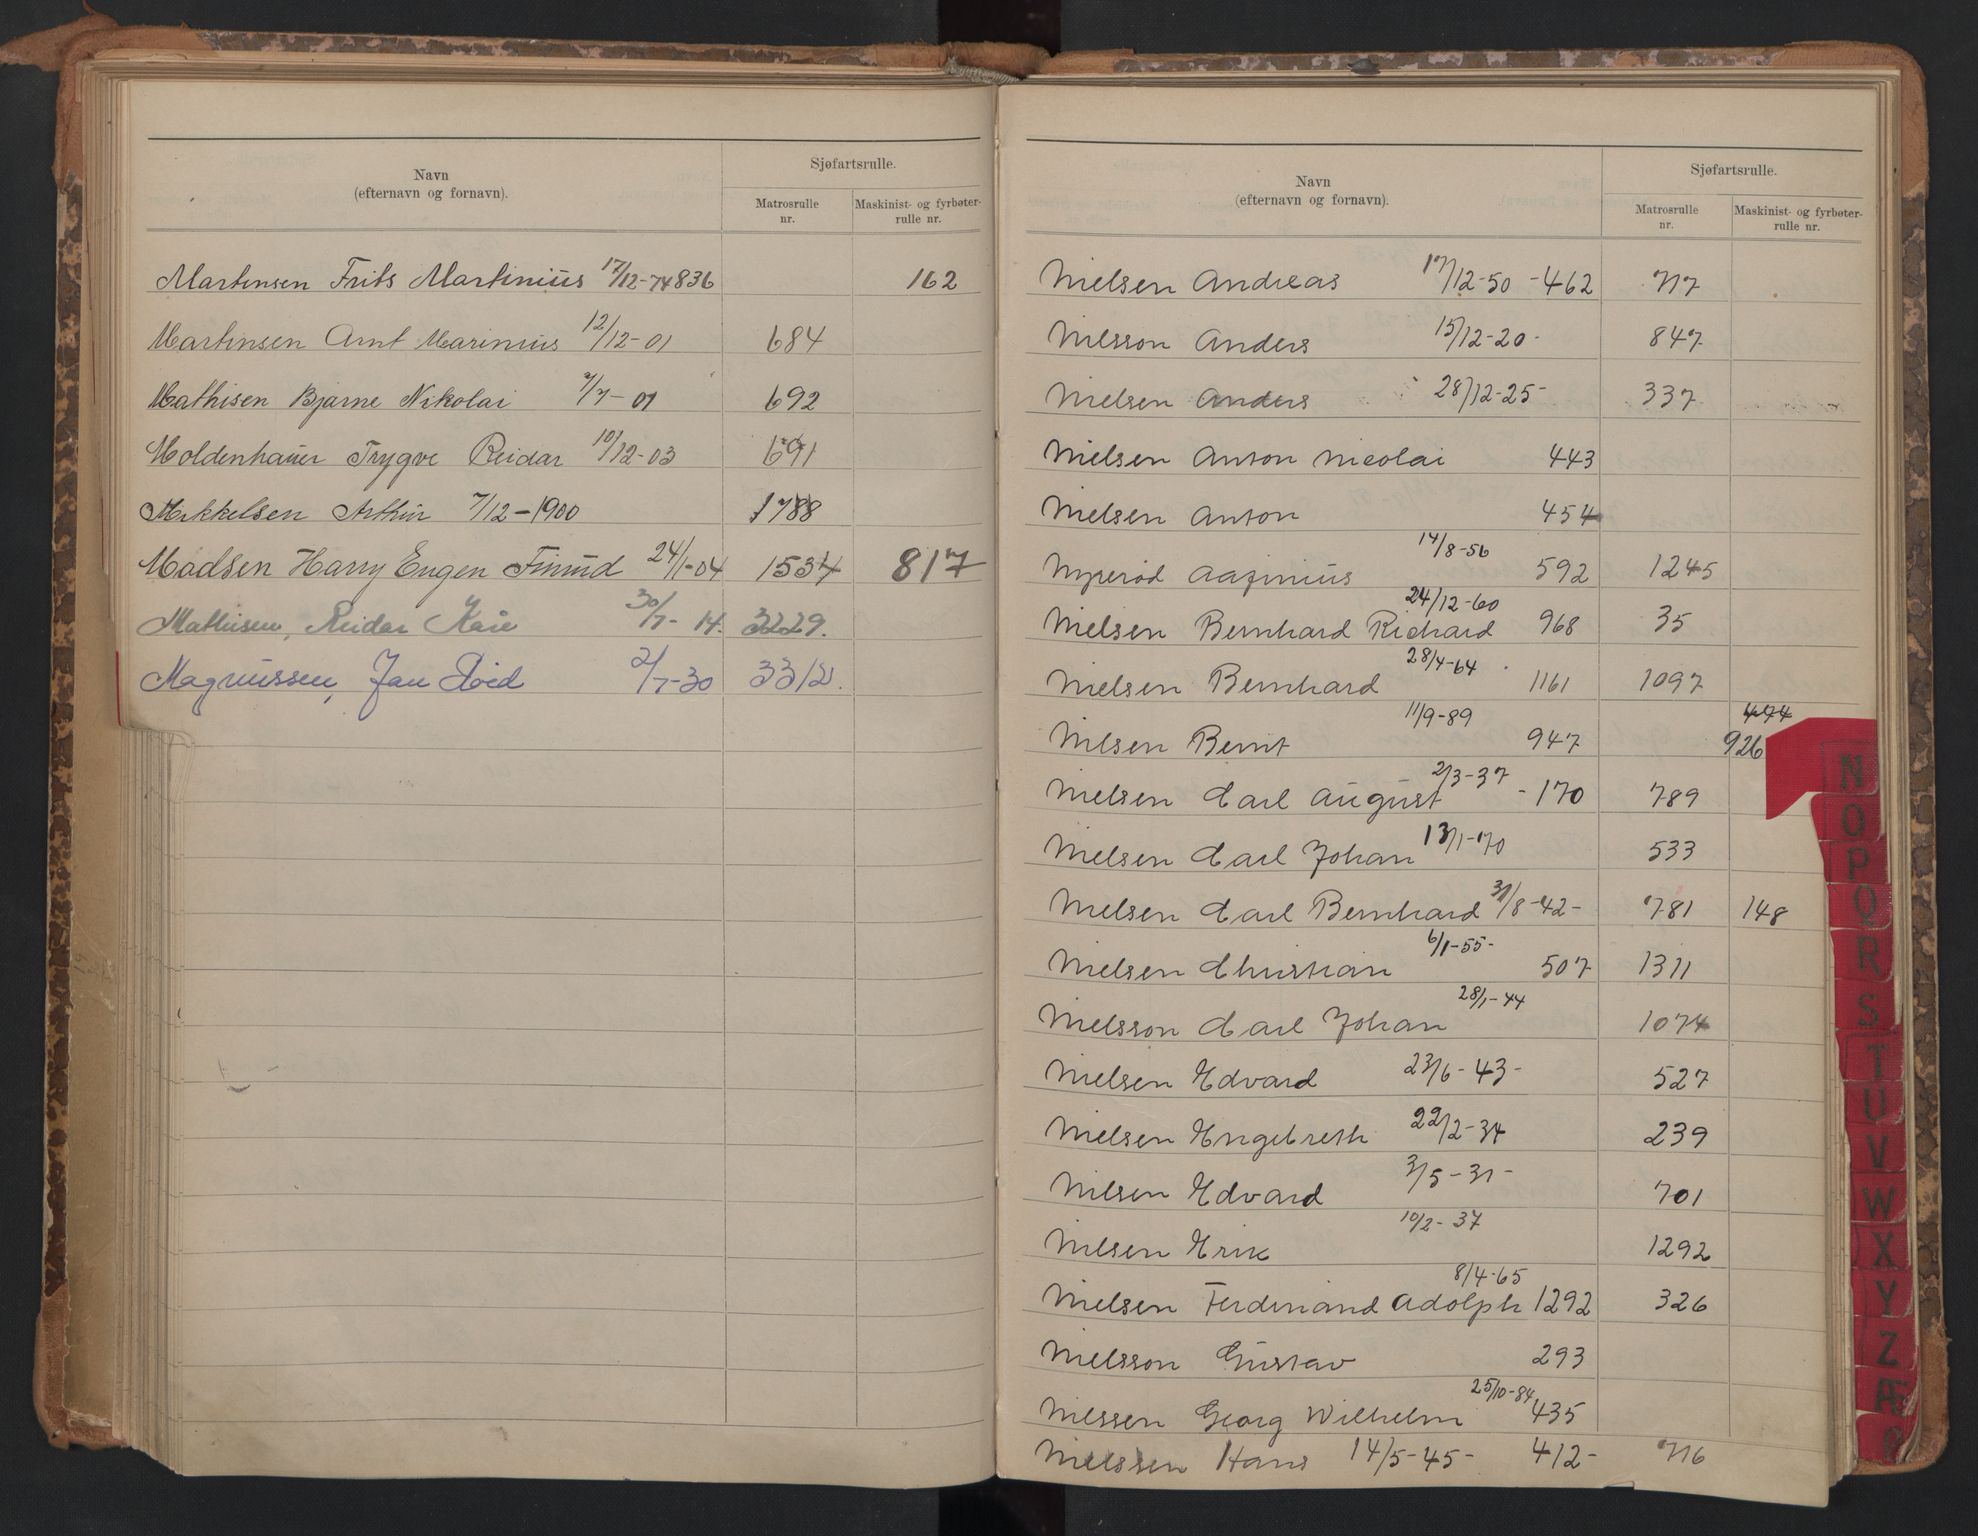 Navn
(efternavn og fornavn).
Sjøfartsrulle.
Matrosrulle nr.
Maskinist- og fyrbøter-rulle nr.
Martinsen Frits Martinius 17/12-74 836 162
Martinsen Arnt Marinius 12/12-01 684
Mathisen Bjarne Nikolai 7/7-01 692
Moldenhauer Trygve Reidar 10/12-03 691
Mikkelsen Arthur 7/12-1900 1788
Madsen Harry Eugen 24/1-04 1534 817
Mathisen, Reidar Kåre 30/7-14. 3229.
Magnussen, Jan Roid 2/7-30 3312.
Navn
(efternavn og fornavn).
Sjøfartsrulle.
Matrosrulle nr.
Maskinist- og fyrbøter-rulle nr.
Nielsen Andreas 17/12-50 -462 717
Nilsson Anders 15/12-20- 847
Nielsen Anders 28/12-25- 337
Nielsen Anton Nicolai 443
Nielsen Anton 454
14/8-56
Nyrerød 592 1245
24/12-60
Nielsen Bernhard Richard 968 35
28/4-64
Nielsen Bernhard 1161 1097
11/9-89 474
Nilsen Bernt 947 926
2/3-37
Nielsen Carl August -170 789
Nielsen Carl Johan 13/1-70 533
Nielsen Carl Bernhard 31/8-42- 781 148
6/1-55-
Nielsen Christian 507 1311
28/1-44
Nielsson Carl Johan 1074
Nielsen Edvard 23/6-43- 527
Nielsen Engebreth 22/2-34 239
Nilsen Edvard 3/5-31- 701
10/2-37
Nilsen Erik 1292
8/4-65
Nielsen Ferdinand Adolph 1292 326
Nielsson Gustav 293
25/10-84
Nilssen Georg Wilhelm 435
Nielssen Hans 14/5-45- 412- 716
N
O
P
Q
R
S
T
U
V
W
X
Y
Z
Æ
Ø